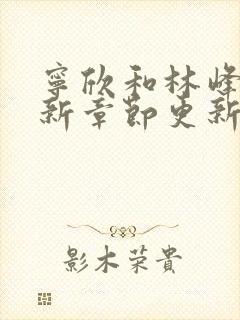 寧欣和林峰
新章節更新
影木荣貴